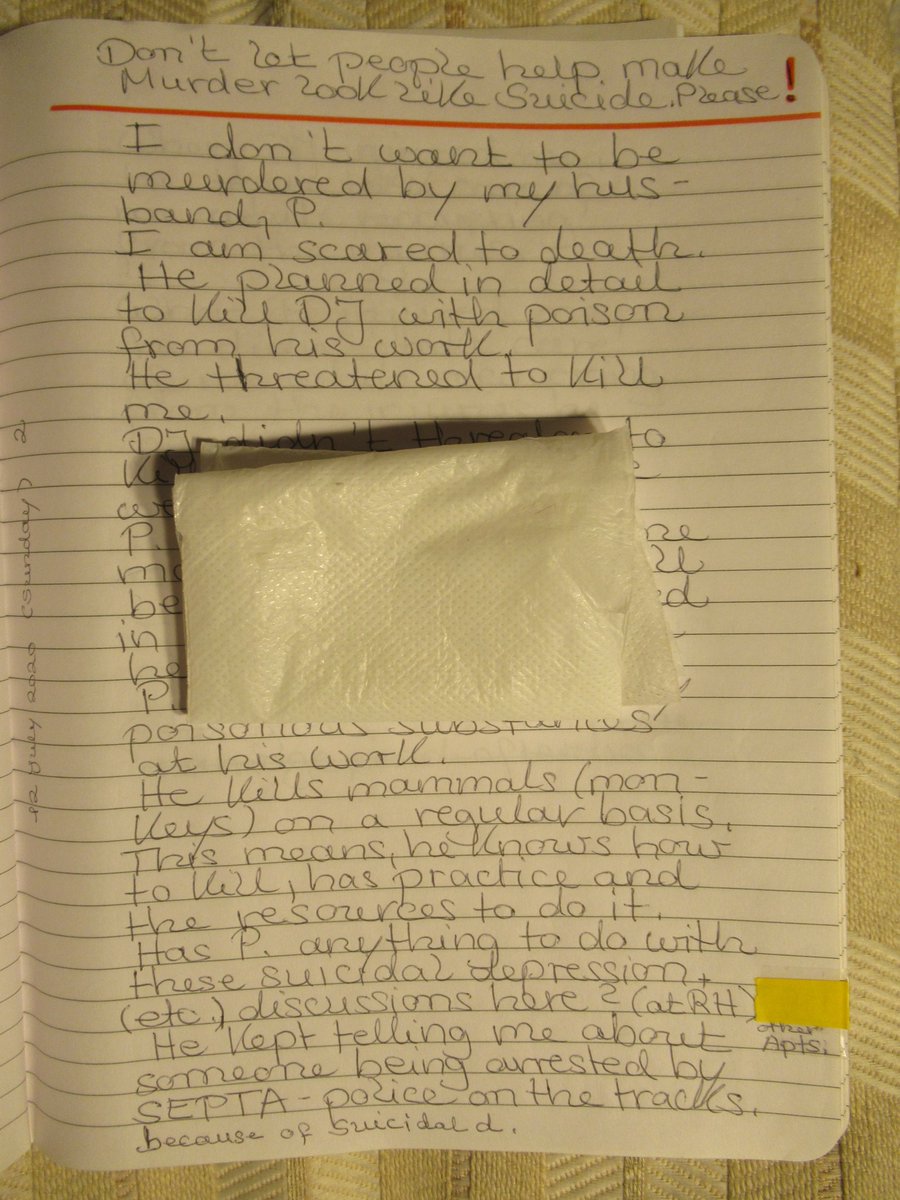 Don't let people help make
Murder look like Suicide. Please!
I don't want to be
murdered by my hus-
band, P.
I am scared to death.
He planned in detail
to kill DJ with poison
from his work.
He threatened to kill
me.
DJ didn't threaten to
P.
be
in
poisonous substances
at his work.
He kills mammals (mon-
keys) on a regular basis.
This means, he knows how
to kill, has practice and
the resources to do it.
Has P. anything to do with
these suicidal depression,
(etc.) discussions here? (at RH)
other
Apts.
He kept telling me about
someone being arrested by
SEPTA-police on the tracks.
because of suicidal d.
12 July 2020 (Sunday) 2